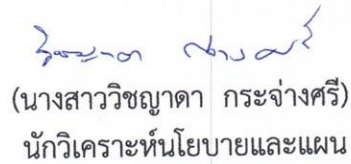 (นางสาววิชญาดา กระจ่างศรี)
นักวิเคราะห์นโยบายและแผน